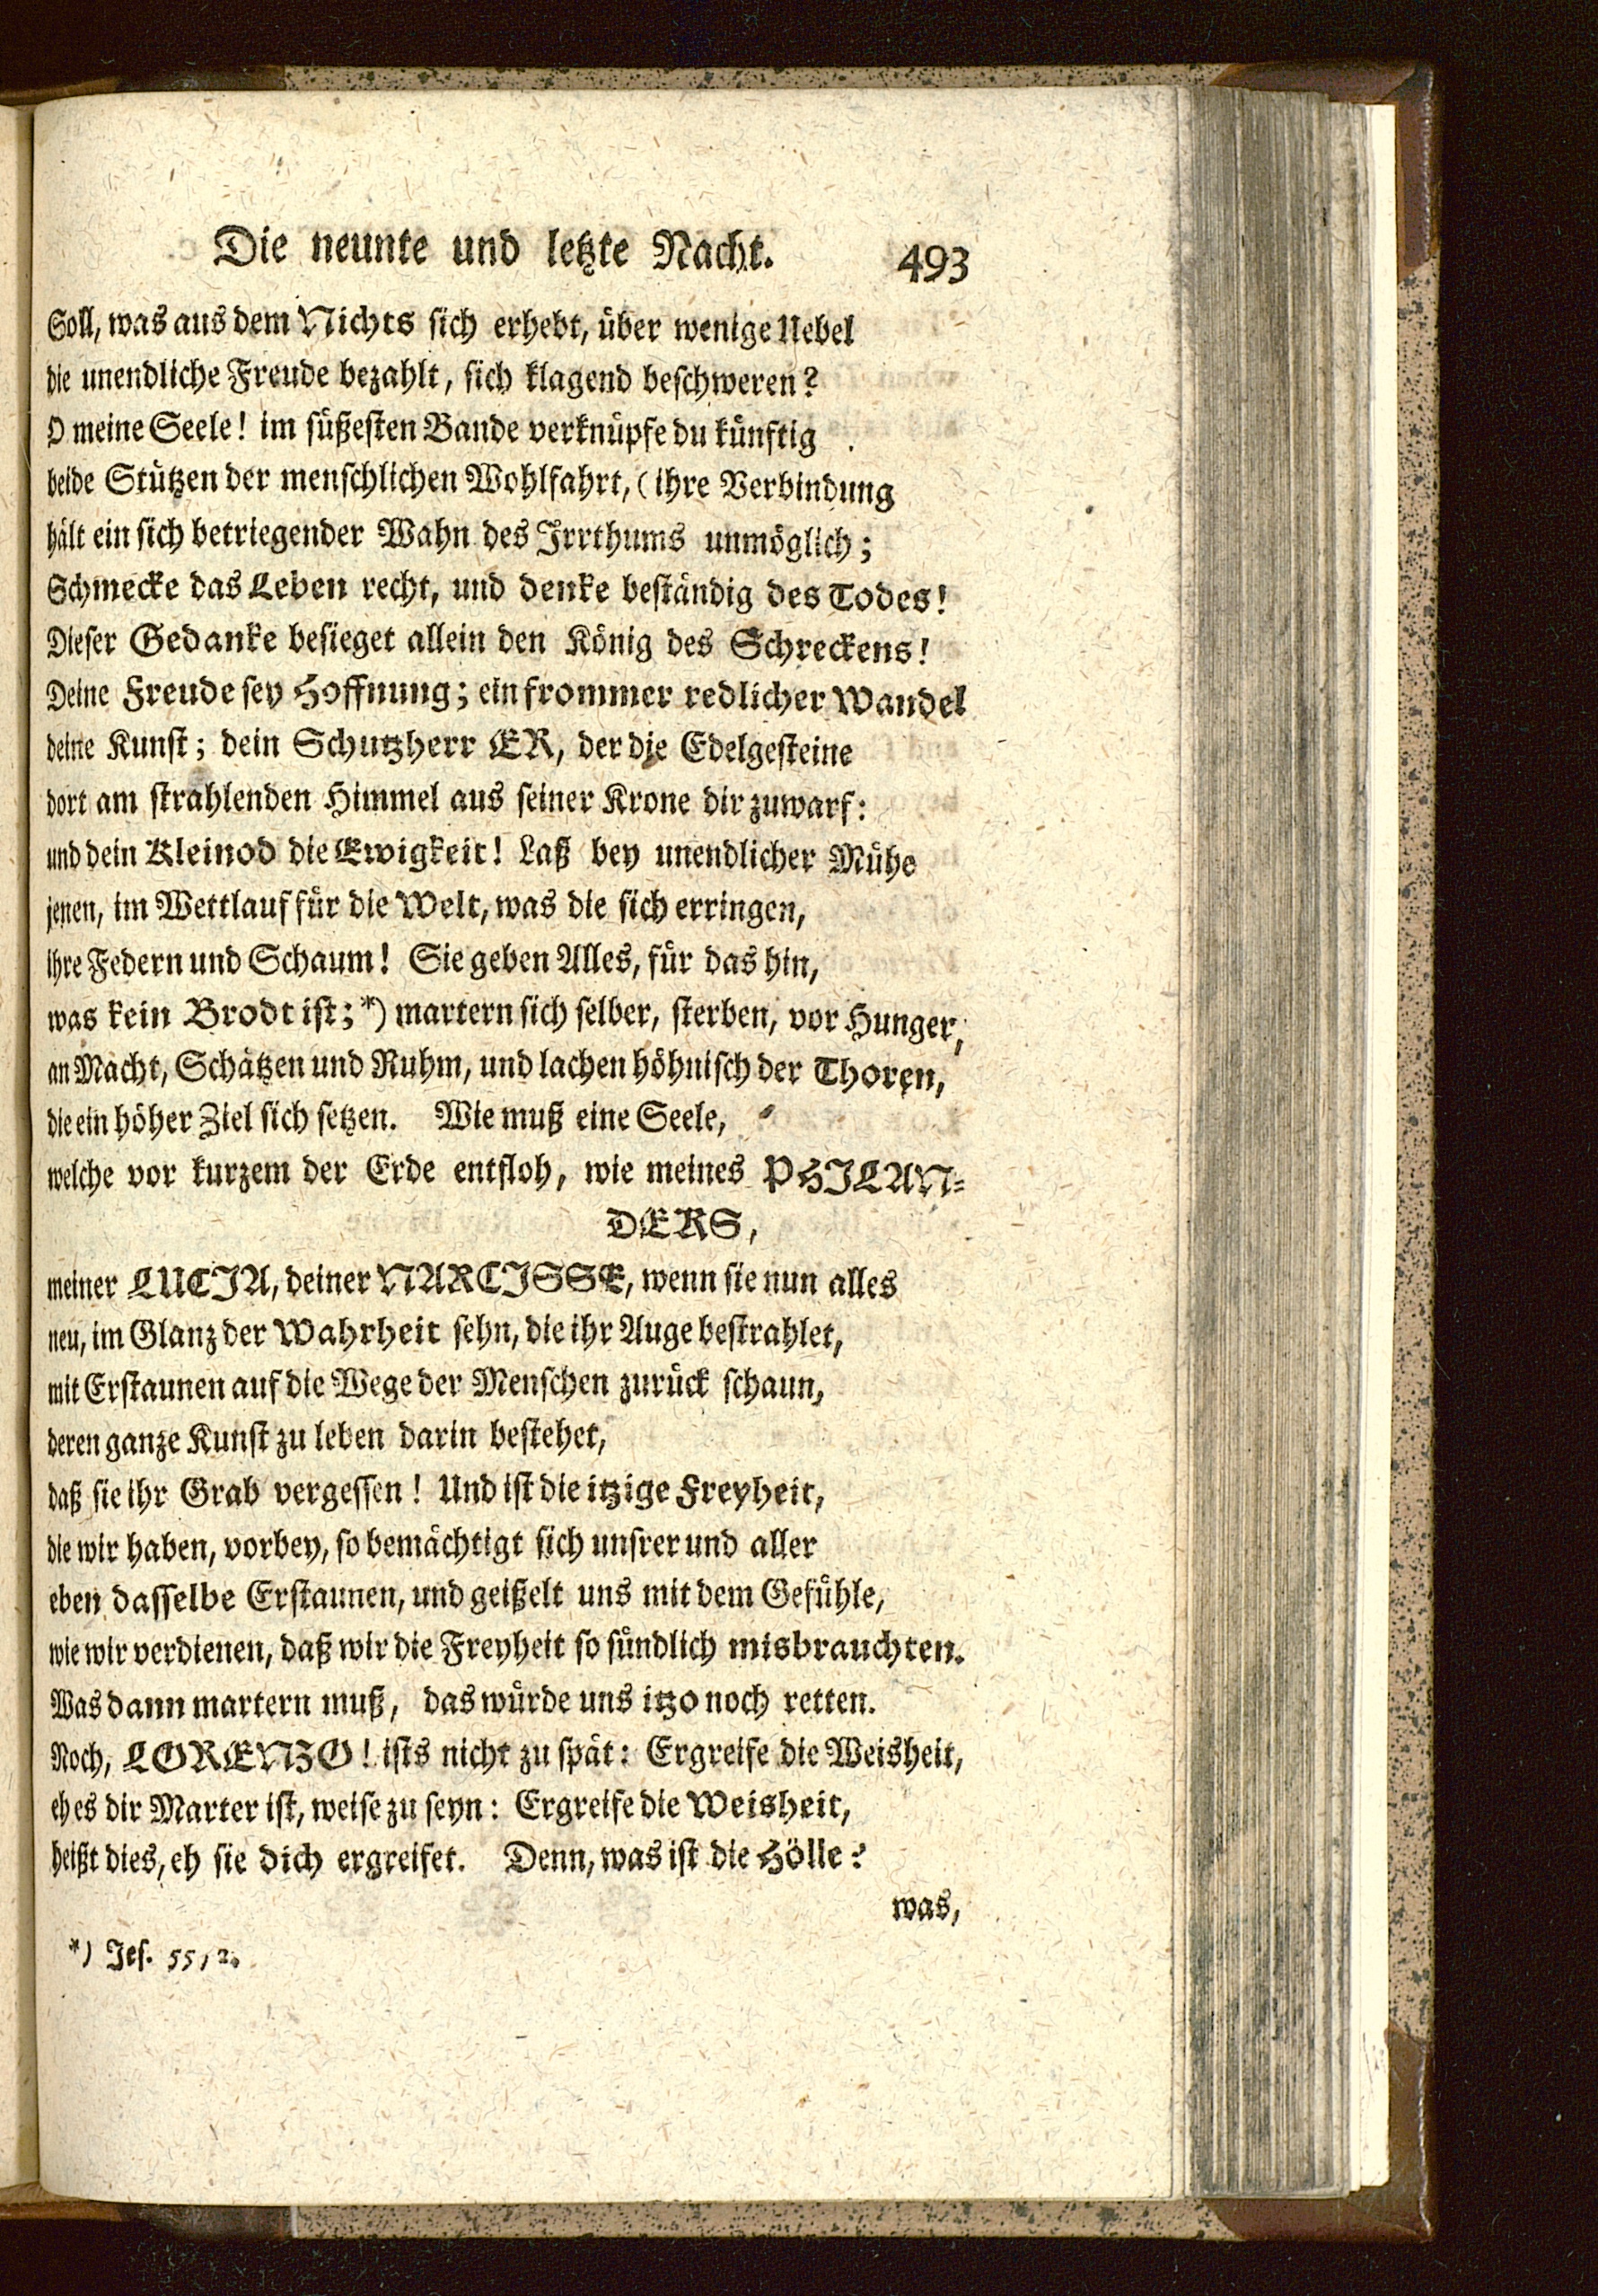 Die neunte und letzte Nacht. 493
Soll, was aus dem Nichts sich erhebt, über wenige Uebel
die unendliche Freude bezahlt, sich klagend beschweren?
O meine Seele! im süßesten Bande verknüpfe du künftig
beide Stützen der menschlichen Wohlfahrt, (ihre Verbindung
hält ein sich betriegender Wahn des Irrthums unmöglich;
Schmecke das Leben recht, und denke beständig des Todes!
Dieser Gedanke besieget allein den König des Schreckens!
Deine Freude sey Hoffnung; ein frommer redlicher Wandel
deine Kunst; dein Schutzherr ER, der die Edelgesteine
dort am strahlenden Himmel aus seiner Krone dir zuwarf:
und dein Kleinod die Ewigkeit! Laß bey unendlicher Mühe
jenen, im Wettlauf für die Welt, was die sich erringen,
ihre Federn und Schaum! Sie geben Alles, für das hin,
was kein Brodt ist;*) martern sich selber, sterben, vor Hunger,
an Macht, Schätzen und Ruhm, und lachen höhnisch der Thoren,
die ein höher Ziel sich setzen. Wie muß eine Seele,
welche vor kurzem der Erde entfloh, wie meines PHILAN-
DERS,
meiner LUCIA, deiner NARCISSE, wenn sie nun alles
neu, im Glanz der Wahrheit sehn, die ihr Auge bestrahlet,
mit Erstaunen auf die Wege der Menschen zurück schaun,
deren ganze Kunst zu leben darin bestehet,
daß sie ihr Grab vergessen! Und ist die itzige Freyheit,
die wir haben, vorbey, so bemächtigt sich unsrer und aller
eben dasselbe Erstaunen, und geißelt uns mit dem Gefühle,
wie wir verdienen, daß wir die Freyheit so sündlich misbrauchten.
Was dann martern muß, das würde uns itzo noch retten.
Noch, LORENZO! ists nicht zu spät: Ergreife die Weisheit,
eh es dir Marter ist, weise zu seyn: Ergreife die Weisheit,
heißt dies, eh sie dich ergreifet. Denn, was ist die Hölle?
was,
*) Jes. 55, 2.